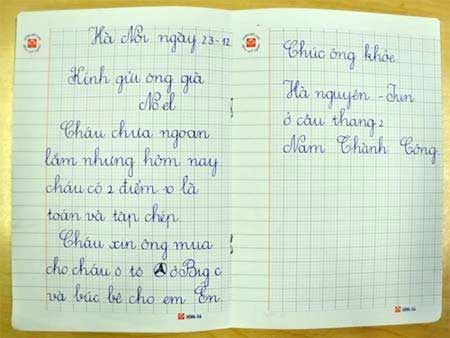 Hà Nội ngày 23-12
Kính gửi ông già
Nô el
Cháu chưa ngoan
lắm nhưng hôm nay
cháu có 2 điểm 10 là
toán và tập chép.
Cháu xin ông mua
cho cháu ô tô ở Big c
và búc bê cho em En
Chúc ông khỏe
Hà nguyên - Jun
ở cầu thang 2
Nam Thành Công.
HỒNG HÀ
HỒNG HÀ